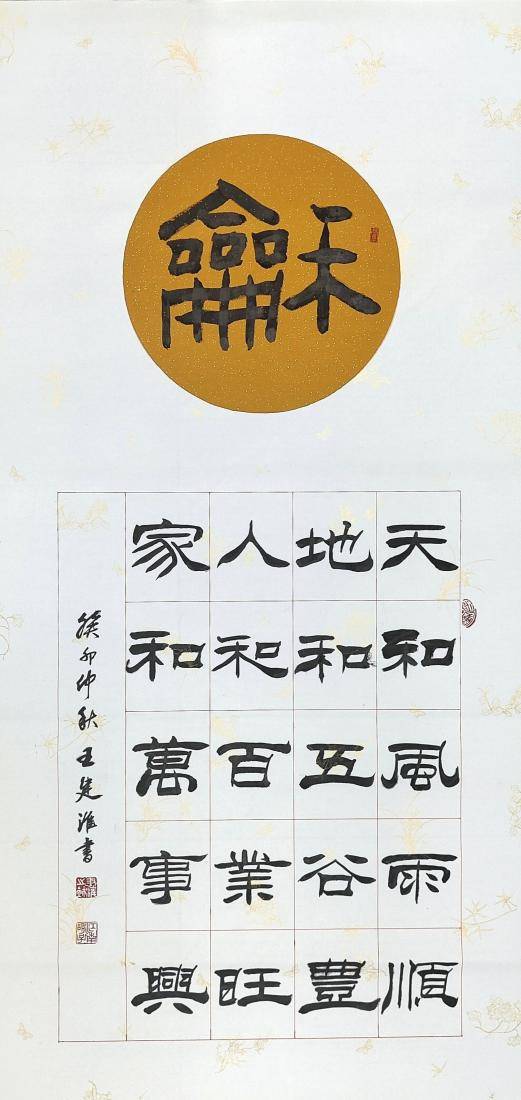 龢
天和風雨順
地和五谷豐
人和百業旺
家和萬事興
癸卯仲秋王建淮書